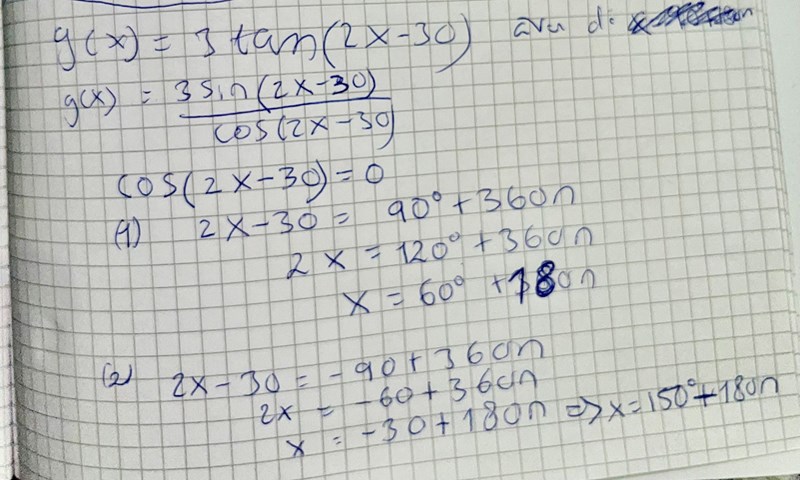 g(x) = 3 tan(2x-30)
g(x) = 3 sin(2x-30) / cos(2x-30)
cos(2x-30)=0
(1) 2x-30 = 90°+360n
2x = 120°+360n
x = 60° +180n
(2) 2x-30 = -90+360n
2x = -60+360n
x = -30+180n => x=150°+180n